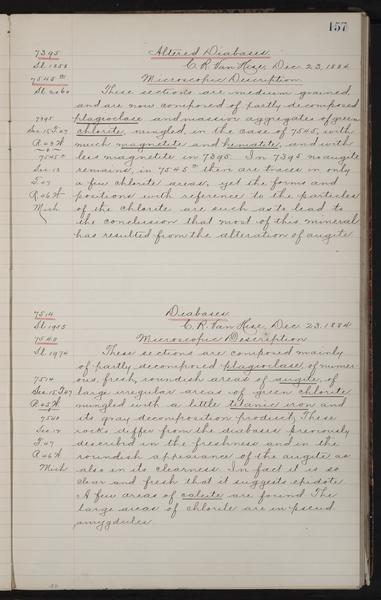 157
7395 Altered Diabases.
Sl. 1858 C. R. Van Hise, Dec. 23, 1884.
7545 Microscopic Description.
Sl. 2060 These sections are medium grained
and are now composed of partly decomposed
7395 plagioclase and massive aggregates of green
Sec. 15 T 47 chlorite, mingled, in the case of 7545, with
R 43 W much magnetite and hematite, and with
7545 less magnetite in 7395. In 7395 no augite
Sec. 13 remains, in 7545 there are traces in only
T 47 a few chlorite areas, yet the forms and
R 46 W positions with reference to the particles
Mich of the chlorite are such as to lead to
the conclusion that most of this mineral
has resulted from the alteration of augite.
7514 Diabases.
Sl. 1905 C. R. Van Hise, Dec. 23, 1884
7540 Microscopic Description
Sl. 1974 These sections are composed mainly
of partly decomposed plagioclase, of numer
7514 ous, fresh, roundish areas of augite, of
Sec. 15 T 47 large irregular areas of green chlorite
R 45 W mingled with a little titanic iron and
7540 its gray decomposition product. These
Sec. 18 rocks differ from the diabases previously
T 47 described in the freshness and in the
R 46 W roundish appearance of the augite as
Mich also in its clearness. In fact it is so
clear and fresh that it suggests epidote.
A few areas of calcite are found. The
large areas of chlorite are in pseud
amygdules.